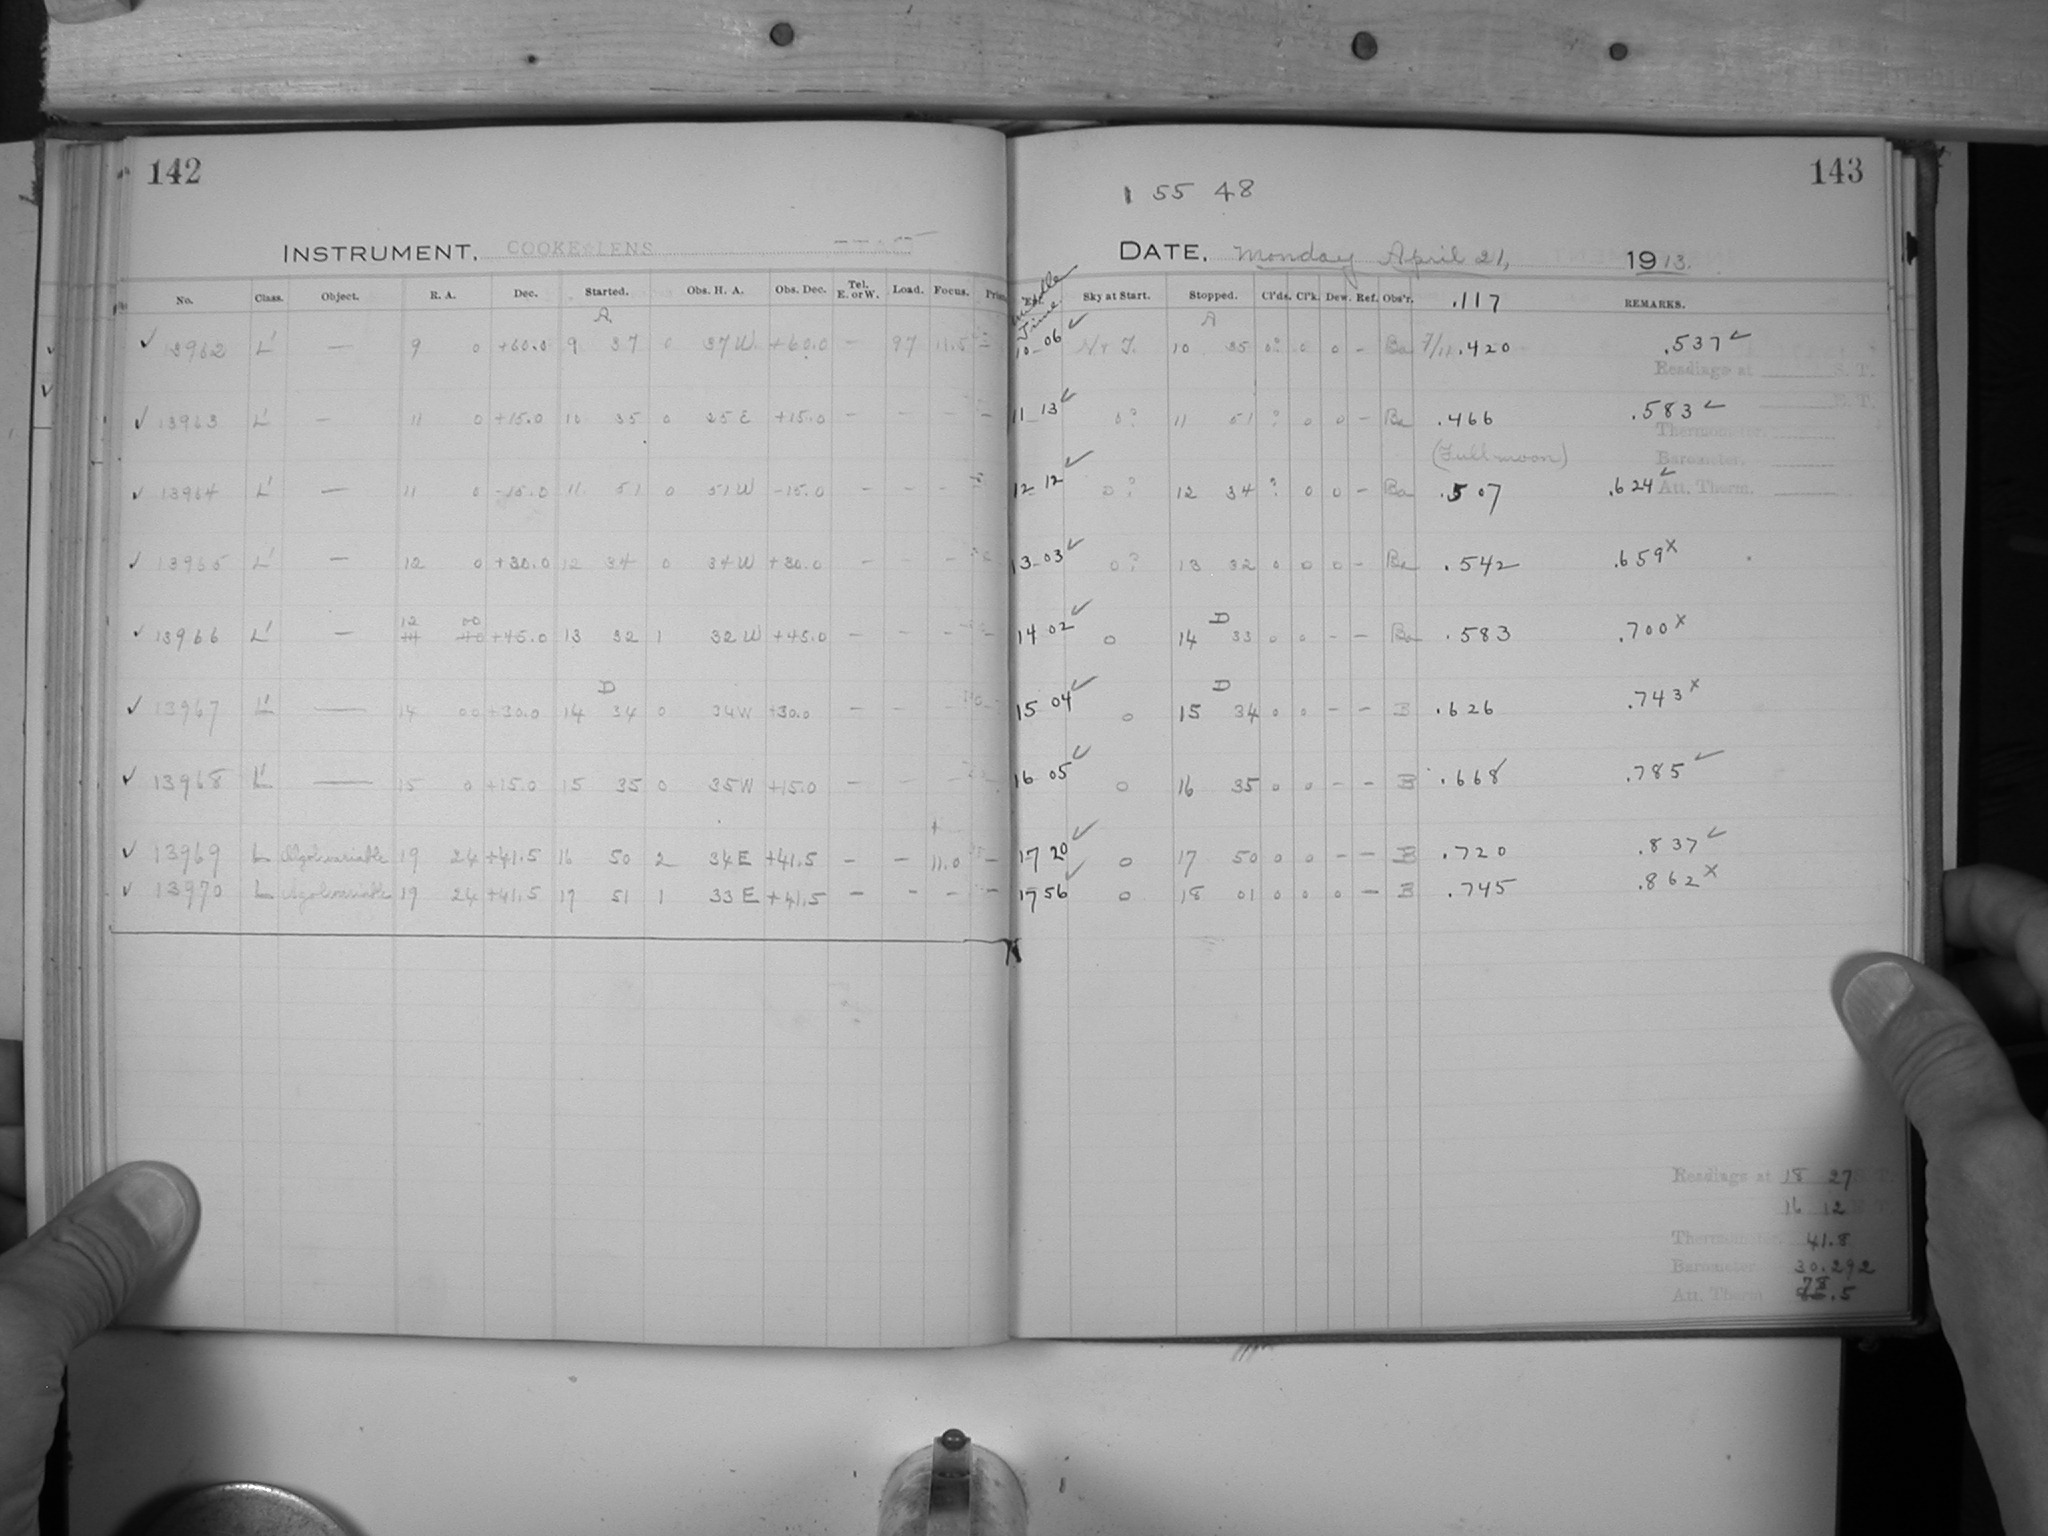 142
143
1 55 48
INSTRUMENT. COOKE LENS
DATE. Monday April 21, 1913.
No. Class. Object. R. A. Dec. Started. Obs. H. A. Obs. Dec. Tel. E. or W. Load. Focus. Middle Time Sky at Start. Stopped. Cl'ds. Cl'k. Dew. Ref. Obs'r. .117 REMARKS.
A A
✓ 13962 L' — 9 0 +60.0 9 37 0 37 W +60.0 — 97 11.5 10 06 ✓ 10 35 0? 0 0 - Ba 7/11 .420 .537 ✓
Readings at S. T.
✓ 13963 L' — 11 0 +15.0 10 35 0 25 E +15.0 — 11 13 ✓ 0? 11 51 ? 0 0 - Ba .466 .583 ✓
Thermometer.
(Full moon) Barometer.
✓ 13964 L' — 11 0 -15.0 11 51 0 51 W -15.0 — - - 12 12 ✓ 0? 12 34 ? 0 0 - Ba .507 .624 ✓ Att. Therm.
✓ 13965 L' — 12 0 +30.0 12 34 0 34 W +30.0 — - - 13 03 ✓ 0? 13 32 0 0 0 - Ba .542 .659 x
12 00 D
✓ 13966 L' — +45.0 13 32 1 32 W +45.0 — - - 14 02 ✓ 0 14 33 0 0 - - Ba .583 .700 x
D D
✓ 13967 L' — 14 00 +30.0 14 34 0 34 W +30.0 - - - 15 04 ✓ 0 15 34 0 0 - - B .626 .743 x
✓ 13968 L' — 15 0 +15.0 15 35 0 35 W +15.0 - - - 16 05 ✓ 0 16 35 0 0 - - B .668 .785 ✓
✓ 13969 L Algol variable 19 24 +41.5 16 50 2 34 E +41.5 - - 11.0 - 17 20 ✓ 0 17 50 0 0 - - B .720 .837 ✓
✓ 13970 L Algol variable 19 24 +41.5 17 51 1 33 E +41.5 - - - - 17 56 ✓ 0 18 01 0 0 0 - B .745 .862 x
Readings at 18 27 S. T.
16 12
Thermometer. 41.8
Barometer 30.292
78
Att. Therm .5